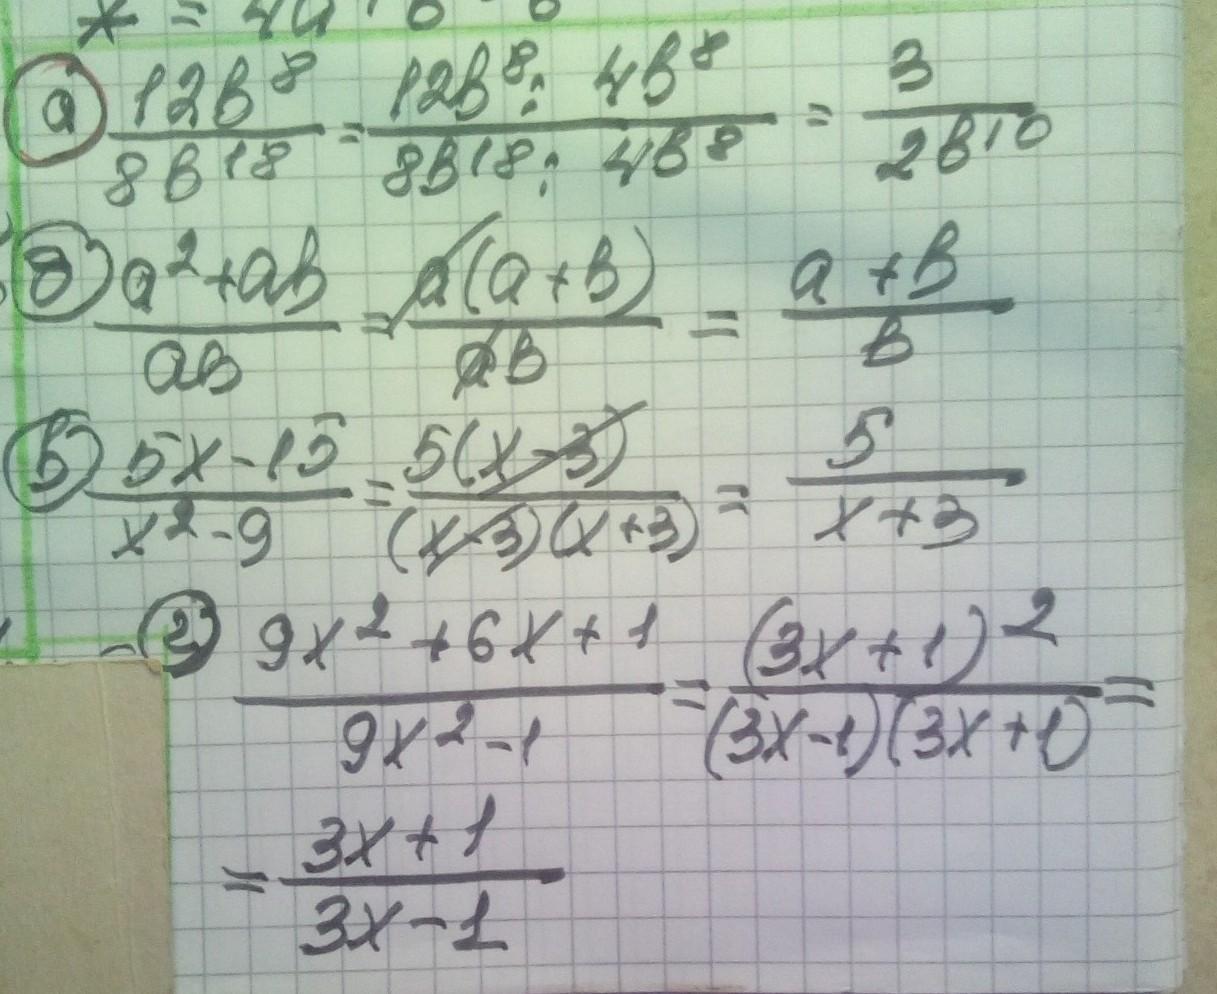 x = 4a
а) 12b⁸/8b¹⁸ = 12b⁸ : 4b⁸/8b¹⁸ : 4b⁸ = 3/2b¹⁰
б) a² + ab/ab = a(a + b)/ab = a + b/b
в) 5x - 15/x² - 9 = 5(x - 3)/(x - 3)(x + 3) = 5/x + 3
г) 9x² + 6x + 1/9x² - 1 = (3x + 1)²/(3x - 1)(3x + 1) =
= 3x + 1/3x - 1